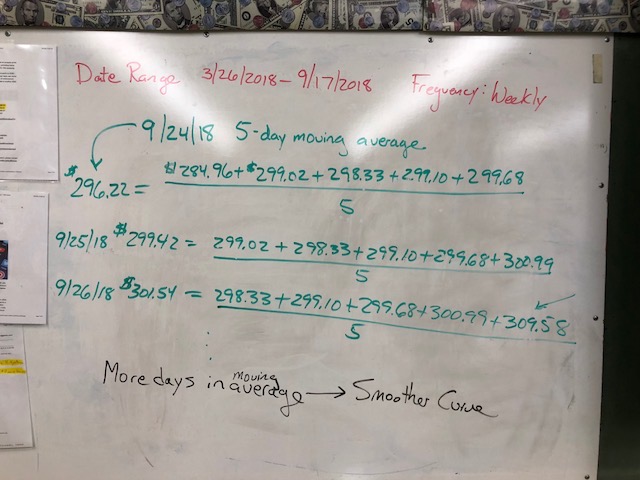 Date Range 3/26/2018 – 9/17/2018 Frequency: Weekly
9/24/18 5-day moving average
$296.22 = $284.96 + $299.02 + 298.33 + 299.10 + 299.68
5
9/25/18 $299.42 = 299.02 + 298.33 + 299.10 + 299.68 + 300.99
5
9/26/18 $301.54 = 298.33 + 299.10 + 299.68 + 300.99 + 309.58
5
More days in moving average → Smoother Curve